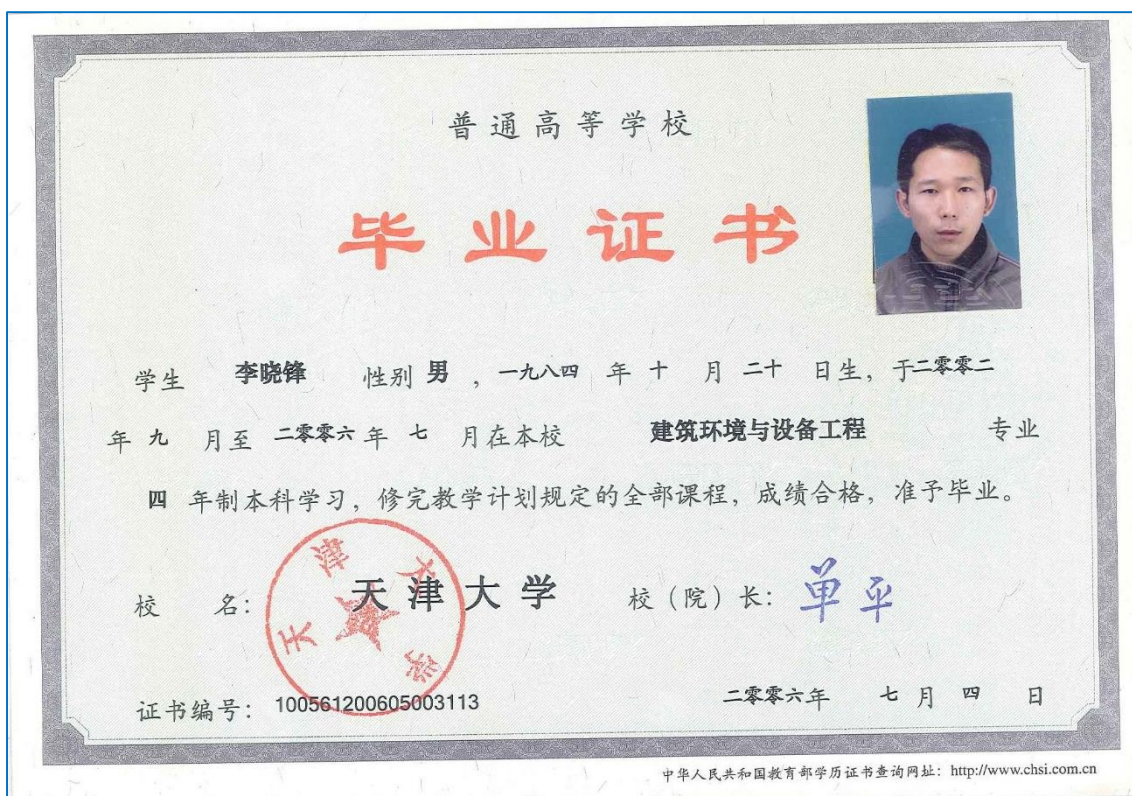 普通高等学校
毕业证书
学生 李晓锋 性别 男 ，一九八四 年 十 月 二十 日生，于二零零二
年 九 月至 二零零六 年 七 月在本校 建筑环境与设备工程 专业
四 年制本科学习，修完教学计划规定的全部课程，成绩合格，准予毕业。
校 名： 天津大学 校（院）长： 单平
天津大学
证书编号： 100561200605003113 二零零六年 七 月 四 日
中华人民共和国教育部学历证书查询网址：http://www.chsi.com.cn